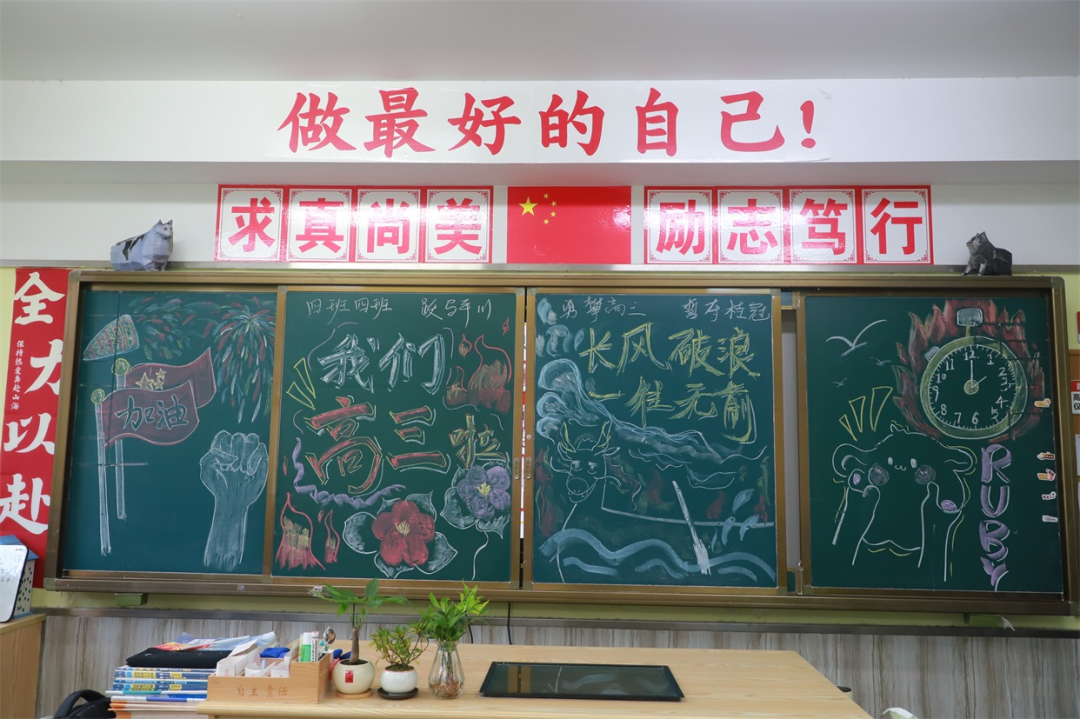 做最好的自己！
求真尚美
励志笃行
全力以赴
保持热爱奔赴山海
加油
四班四班
我们
高三啦
勇攀高三 誓夺桂冠
长风破浪
一往无前
12 1 2 3 4 5 6 7 8 9 10 11
RUBY
自主责任